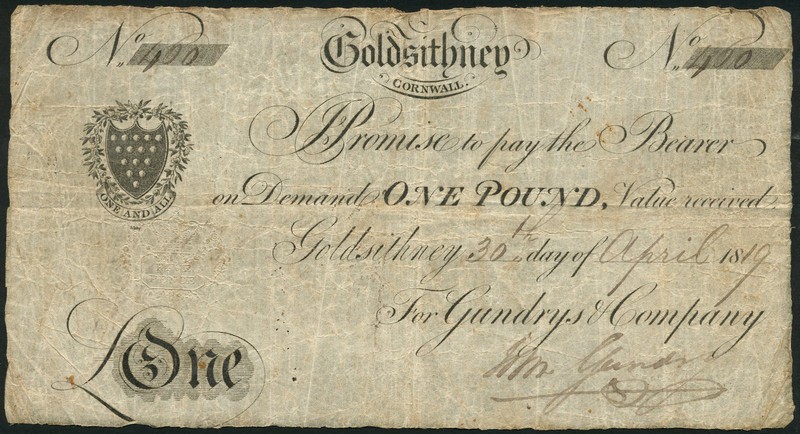 No. 400 Goldsithney No. 400
CORNWALL.
I Promise to pay the Bearer
on Demand ONE POUND, Value received
ONE AND ALL
Goldsithney 30th day of April 1819
For Gundrys & Company
£One Wm. Gundry